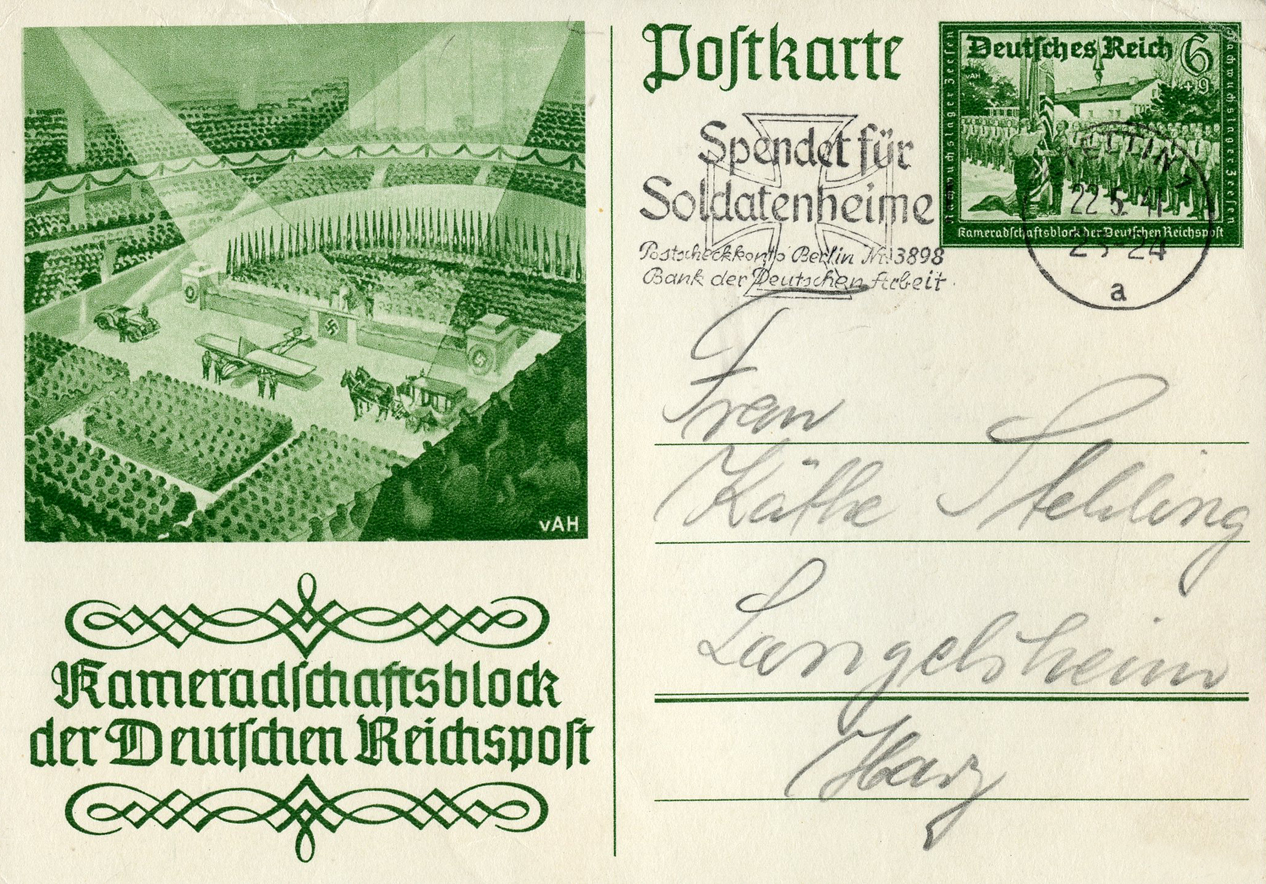 Postkarte
Deutsches Reich 6
+9
vAH
Nachwuchslager Zeesen
Kameradschaftsblock der Deutschen Reichspost
Spendet für
Soldatenheime
Postscheckkonto Berlin Nr. 3898
Bank der Deutschen Arbeit
STETTIN
22.5.41
23-24
a
Frau
Käthe Stehling
Langelsheim
Harz
vAH
Kameradschaftsblock
der Deutschen Reichspost